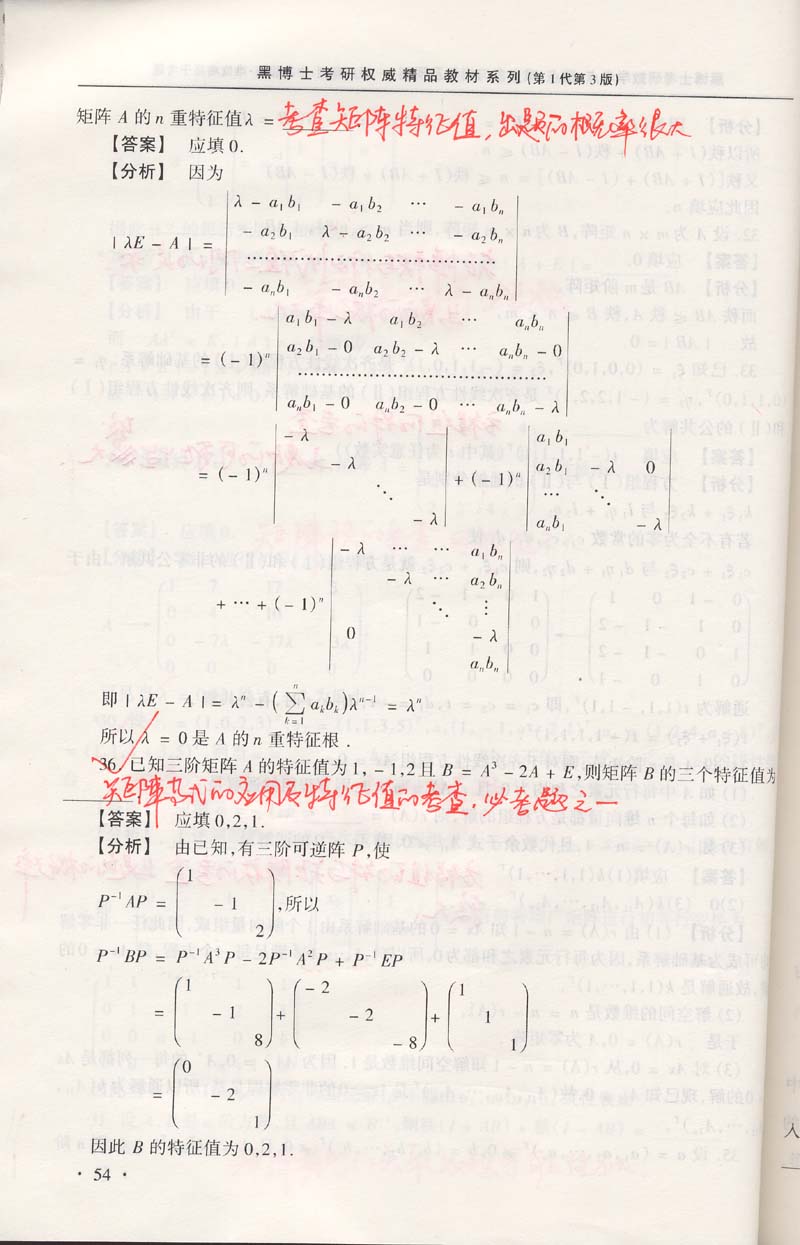 黑博士考研权威精品教材系列(第1代第3版)
矩阵 A 的 n 重特征值λ = 考查矩阵特征值,出题的概率很大
【答案】 应填0.
【分析】 因为
| λE - A | = | λ - a₁b₁ - a₁b₂ ⋯ - a₁bₙ
- a₂b₁ λ - a₂b₂ ⋯ - a₂bₙ
⋯⋯⋯⋯⋯⋯⋯⋯⋯⋯
- aₙb₁ - aₙb₂ ⋯ λ - aₙbₙ |
= (-1)ⁿ | a₁b₁ - λ a₁b₂ ⋯ aₙbₙ
a₂b₁ - 0 a₂b₂ - λ ⋯ aₙbₙ - 0
⋯⋯⋯⋯⋯⋯⋯⋯⋯⋯
aₙb₁ - 0 aₙb₂ - 0 ⋯ aₙbₙ - λ |
= (-1)ⁿ | - λ
- λ
⋱
- λ | + (-1)ⁿ | a₁b₁
a₂b₁ - λ 0
⋯ ⋱
aₙb₁ - λ |
+ ⋯ + (-1)ⁿ | - λ ⋯ ⋯ a₁bₙ
- λ ⋯ a₂bₙ
⋱ ⋮
0 - λ
aₙbₙ |
即 | λE - A | = λⁿ - (∑ₖ₌₁ⁿ aₖbₖ)λⁿ⁻¹ = λⁿ
所以 λ = 0 是 A 的 n 重特征根.
36. 已知三阶矩阵 A 的特征值为 1, - 1,2 且 B = A³ - 2A + E,则矩阵 B 的三个特征值为
矩阵等式的应用及特征值的考查.必考题之一
【答案】 应填0,2,1.
【分析】 由已知,有三阶可逆阵 P,使
P⁻¹AP = (1
- 1
2),所以
P⁻¹BP = P⁻¹A³P - 2P⁻¹A²P + P⁻¹EP
= (1
- 1
8) + (- 2
- 2
- 8) + (1
1
1)
= (0
- 2
1)
因此 B 的特征值为0,2,1.
· 54 ·
入